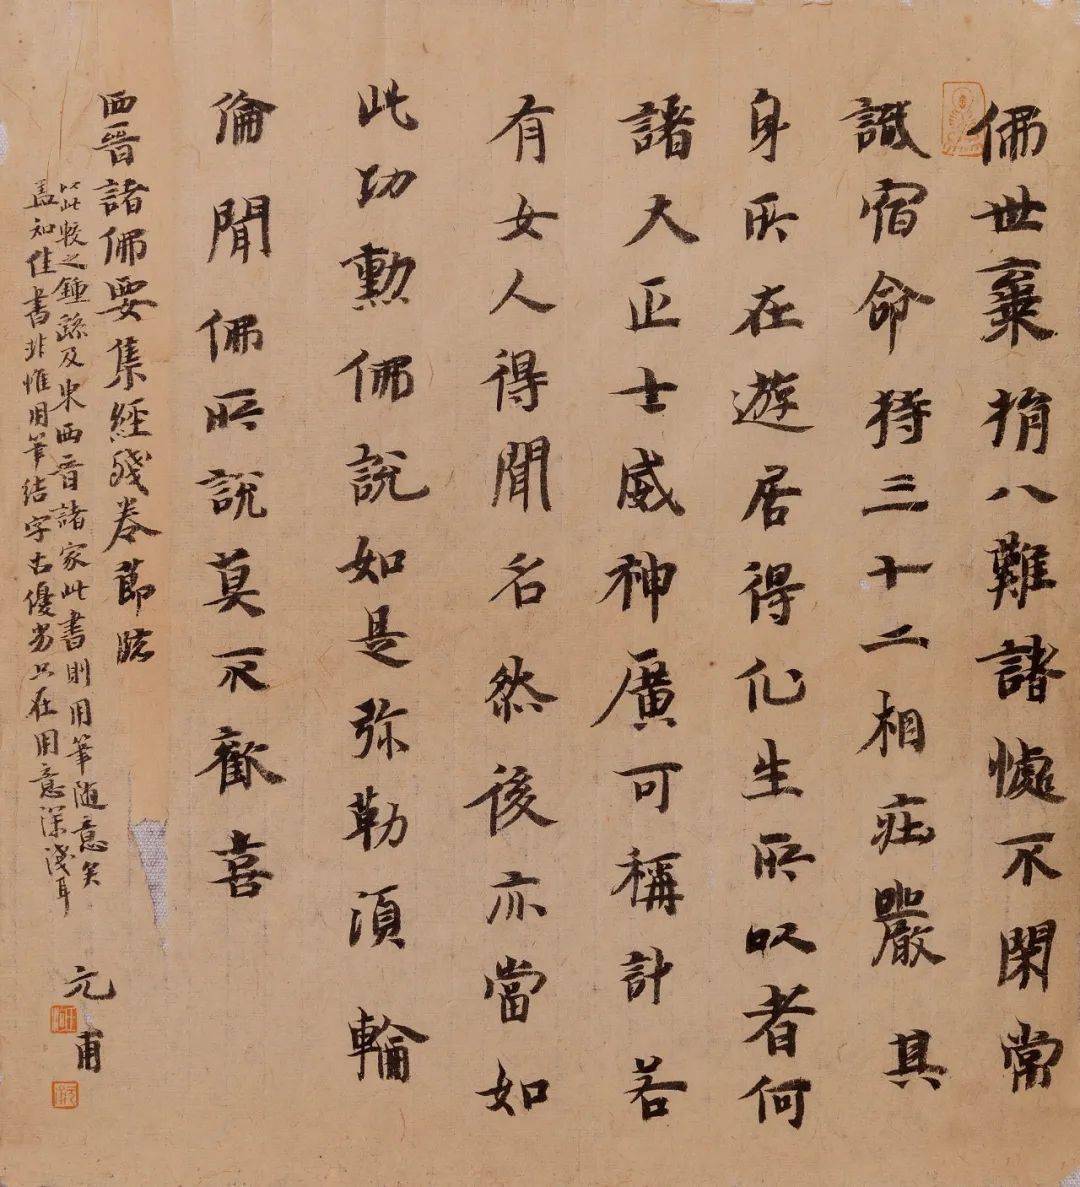 佛世棄捐八難諸惱不閑常
識宿命持三十二相莊嚴其
身所在遊居得化生所叹者何
諸大正士威神廣可稱計若
有女人得聞名然後亦當如
此功勲佛說如是弥勒須輪
倫聞佛所說莫不歡喜
西晉諸佛要集經殘卷節臨
以此較之鍾繇及東西晉諸家此書則用筆隨意矣
盖知佳書非惟用筆結字古優劣只在用意深淺耳
元甫